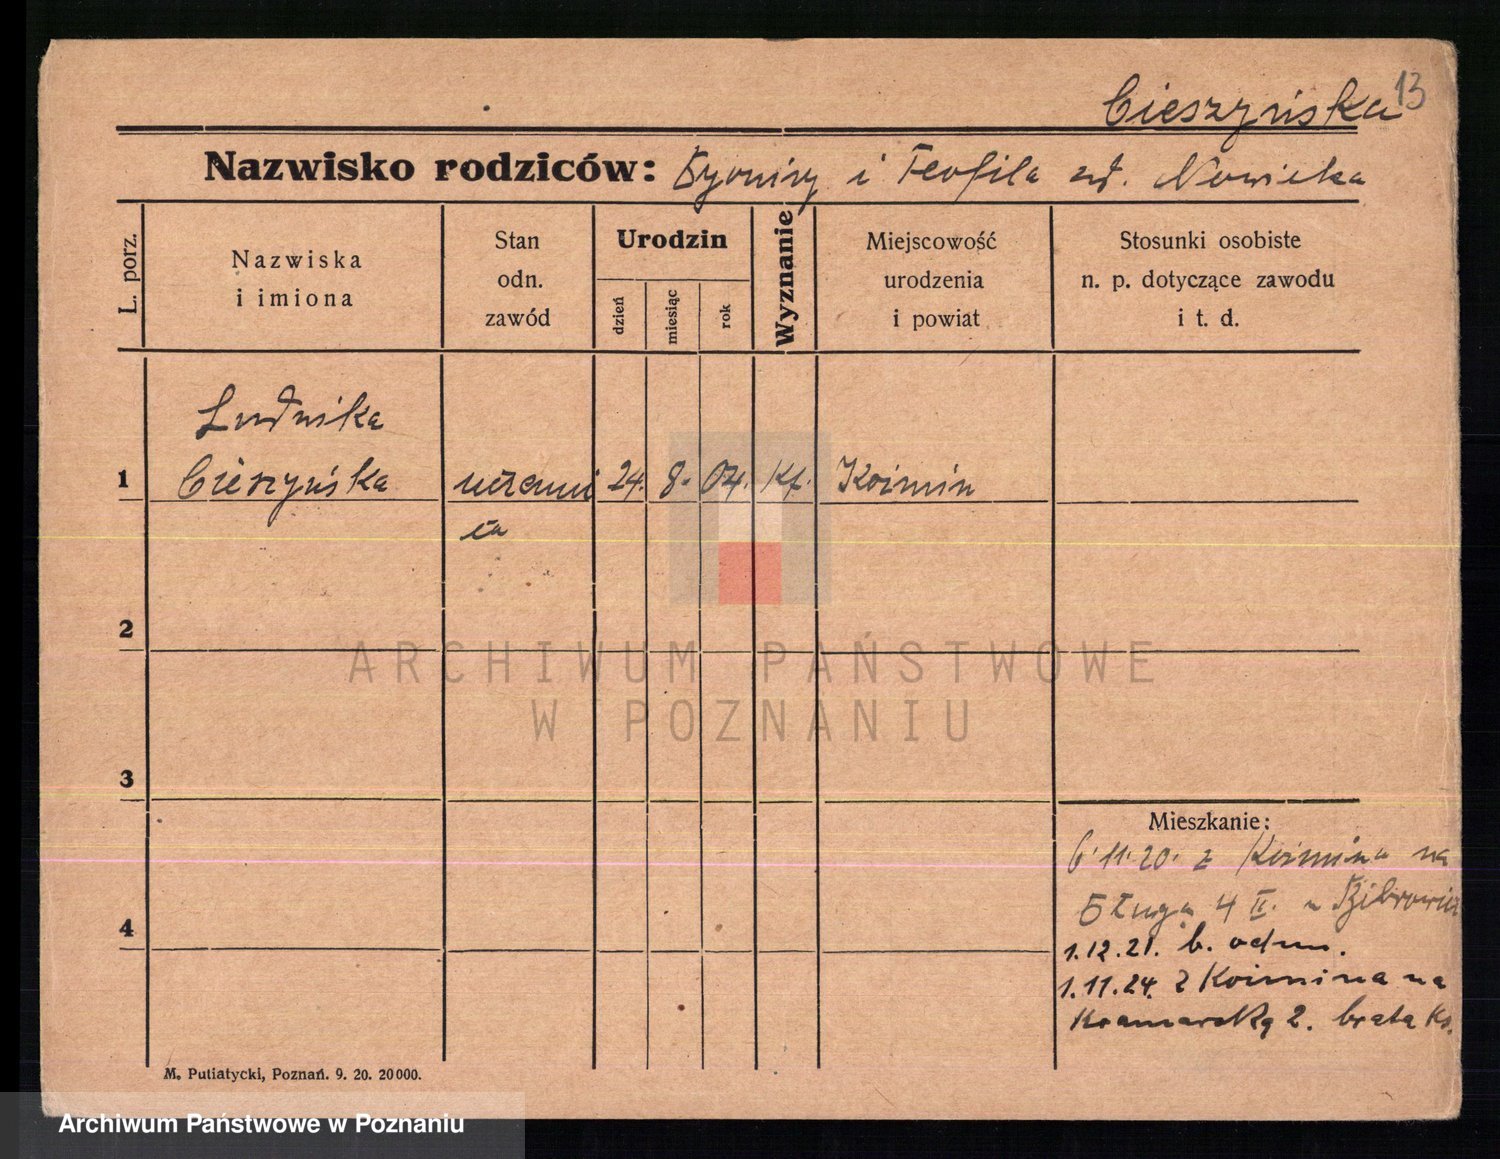 13
Cieszyńska
Nazwisko rodziców: Dyonizy i Teofila zd. Nowicka
L. porz.
Nazwiska
i imiona
Stan
odn.
zawód
Urodzin
dzień
miesiąc
rok
Wyznanie
Miejscowość
urodzenia
i powiat
Stosunki osobiste
n. p. dotyczące zawodu
i t. d.
Ludwika
1 Cieszyńska uczenni 24. 8. 04. Kt. Koźmin
ca
2
ARCHIWUM PAŃSTWOWE
W POZNANIU
3
Mieszkanie:
6.11.20. z Koźmina na
Długa 4 II. u
4
1.12.21. b. odm.
1.11.24. z Koźmina na
Kramarską 2. brata
M. Putiatycki, Poznań. 9. 20. 20000.
Archiwum Państwowe w Poznaniu